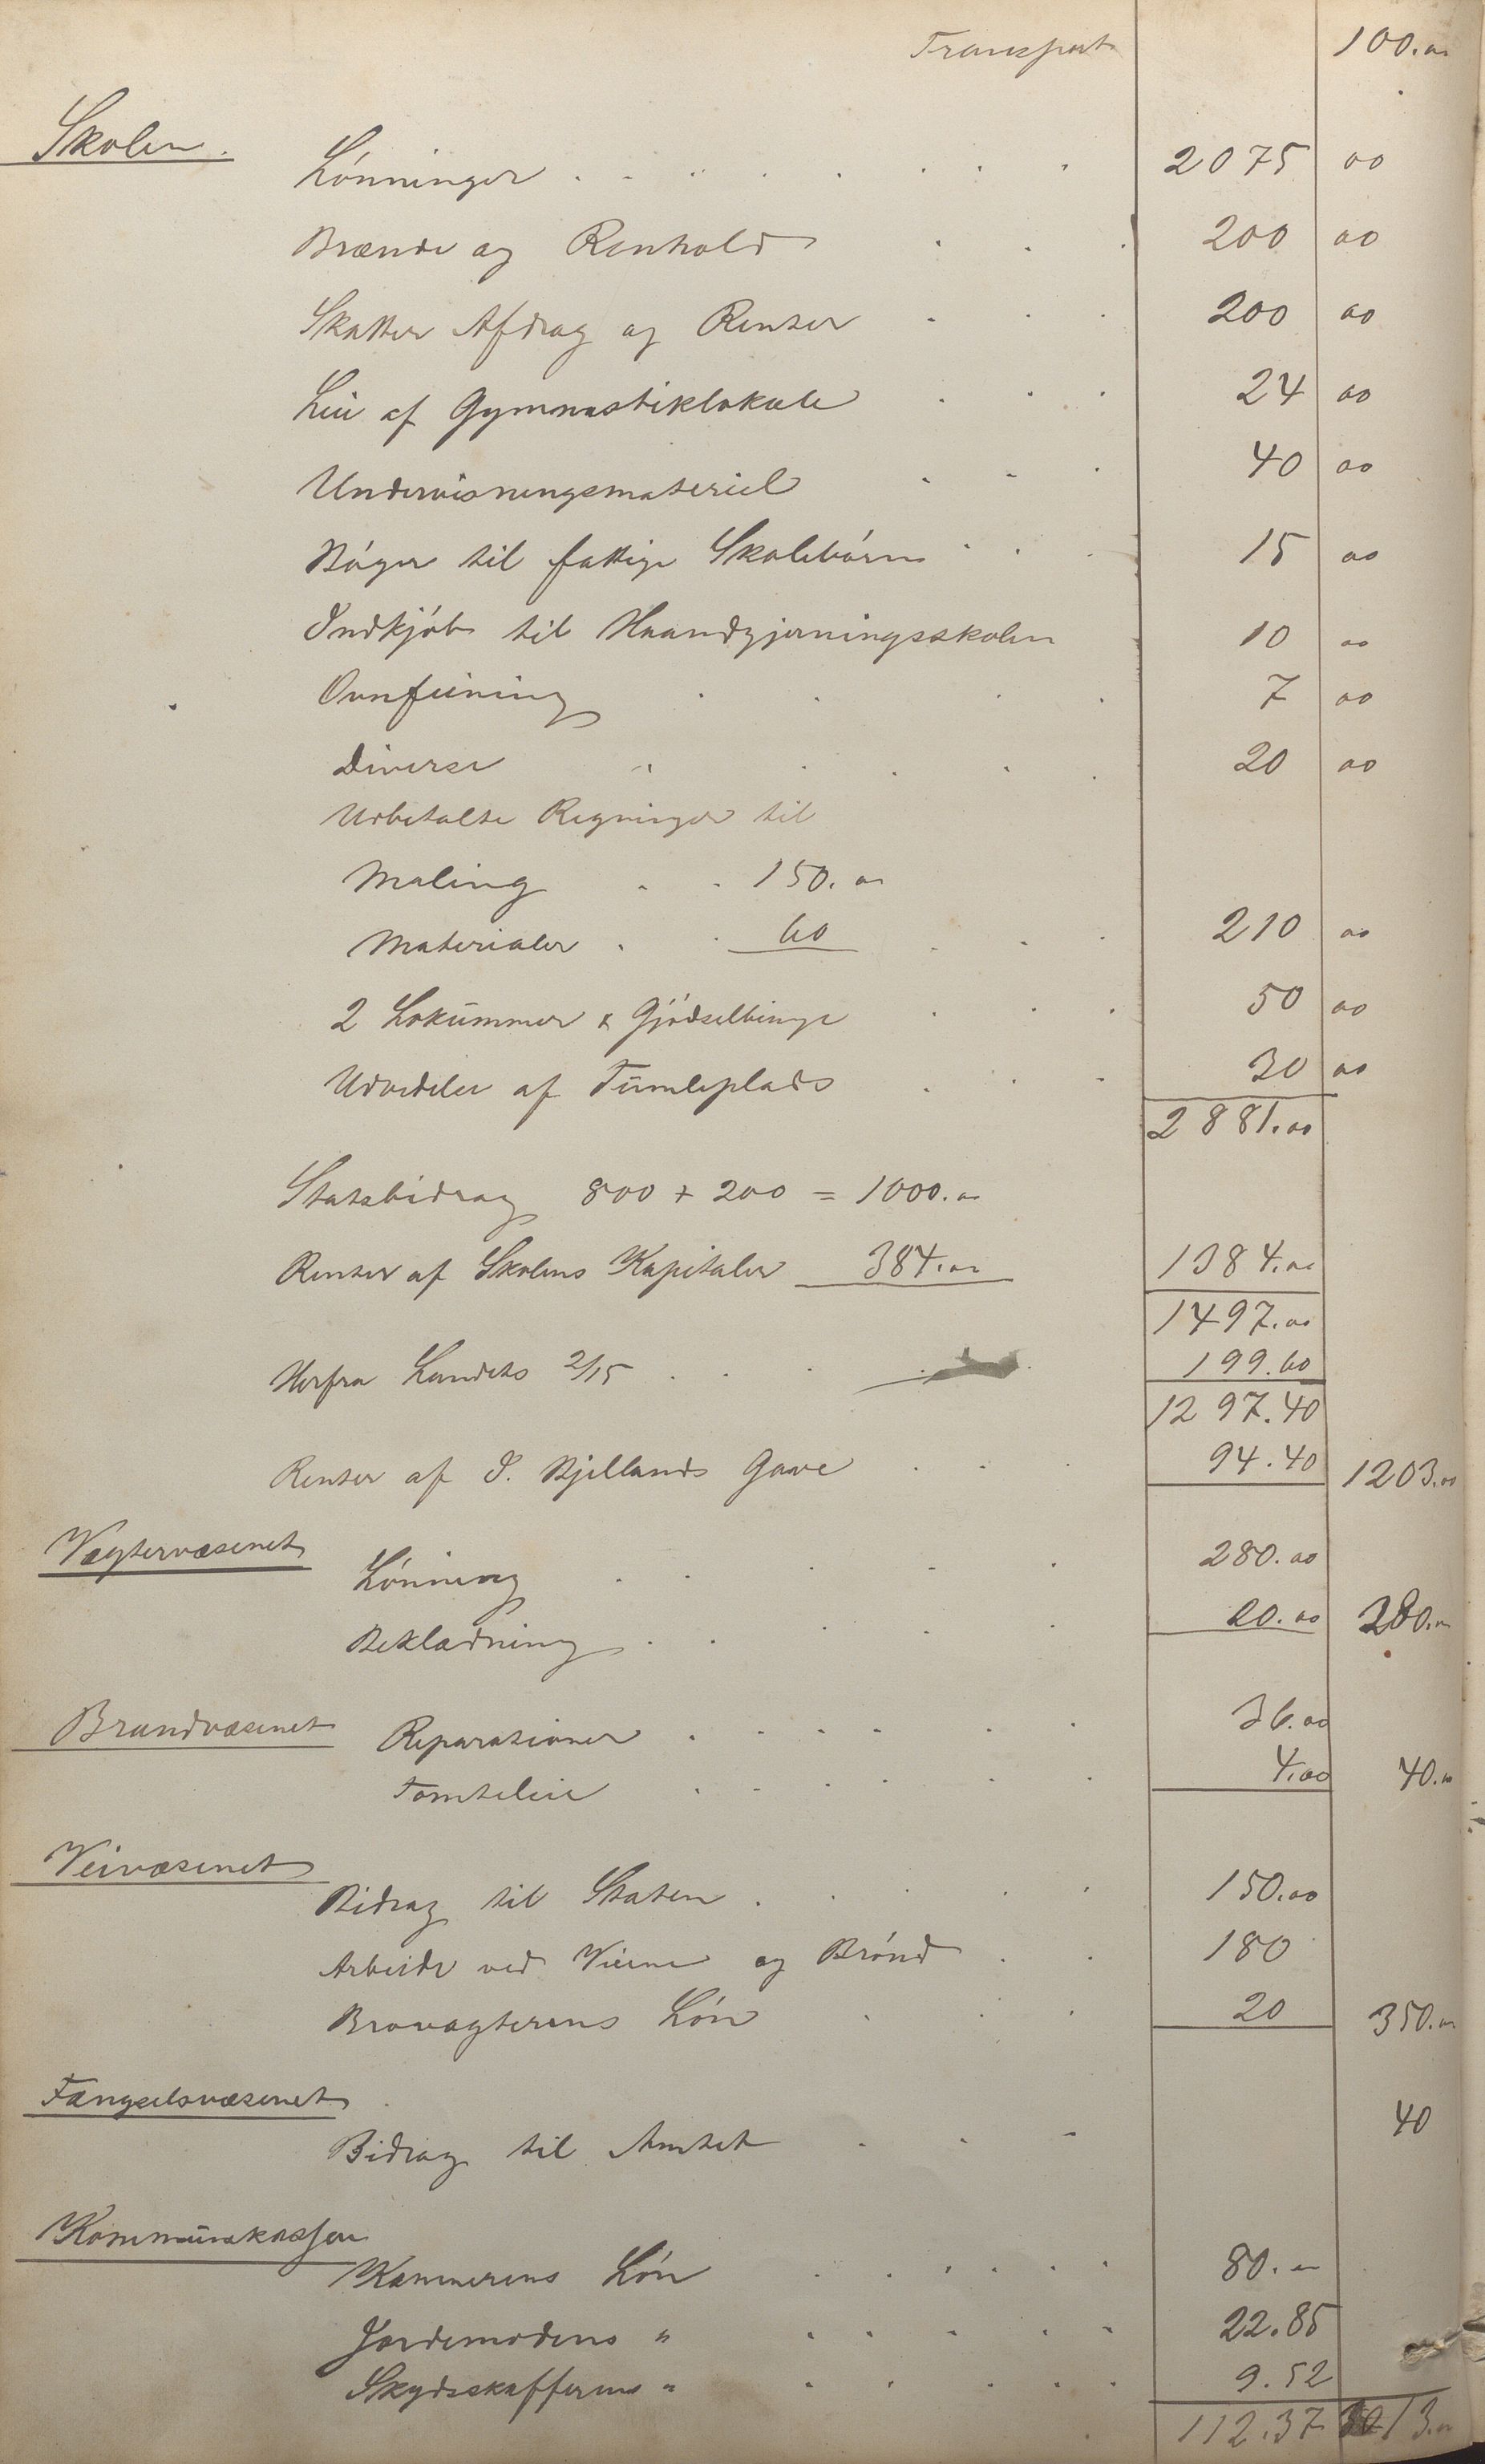 Transport 100.00
Skolen.
Lønninger . . . . . . . 2075 00
Brænde og Renhold . . . 200 00
Skatter Afdrag og Renter . . . 200 00
Leie af Gymnastiklokale . . . 24 00
Undervisningsmateriel . . . 40 00
Bøger til fattige Skolebørn . . . 15 00
Indkjøb til Haandgjerningsskolen 10 00
Ovnfeining . . . . 7 00
Diverse . . . . . 20 00
Ubetalte Regninger til
Maling . . 150.00
Materialer . . 60 . . . 210 00
2 Lokummer & Gjødselbinge . . . 50 00
Udvidelse af Tumleplads . . . 30 00
2881.00
Statsbidrag 800 + 200 = 1000.00
Renter af Skolens Kapitaler 384.00 1384.00
1497.00
Herfra Landets 2/15 . . . 199.60
1297.40
Renter af I. Kjellands Gave . . . 94.40 1203.00
Vægtervæsenet
Lønning . . . . . 280.00
Beklædning . . . . . 20.00
Brandvæsenet
Reparationer . . . . . . 36.00
Tomteleie . . . . . . 4.00 40.00
Veivæsenet
Bidrag til Staten . . . . . 150.00
Arbeide ved Veiene og Brønd . . 180
Brovagterens Løn . . . 20 350.00
Fængselsvæsenet
Bidrag til Amtet . . . 40
Kommunekassen
Kæmnerens Løn . . . . . . 80.00
Jordemodens " . . . . . 22.85
Skydsskafferens " . . . . . 9.52
112.37